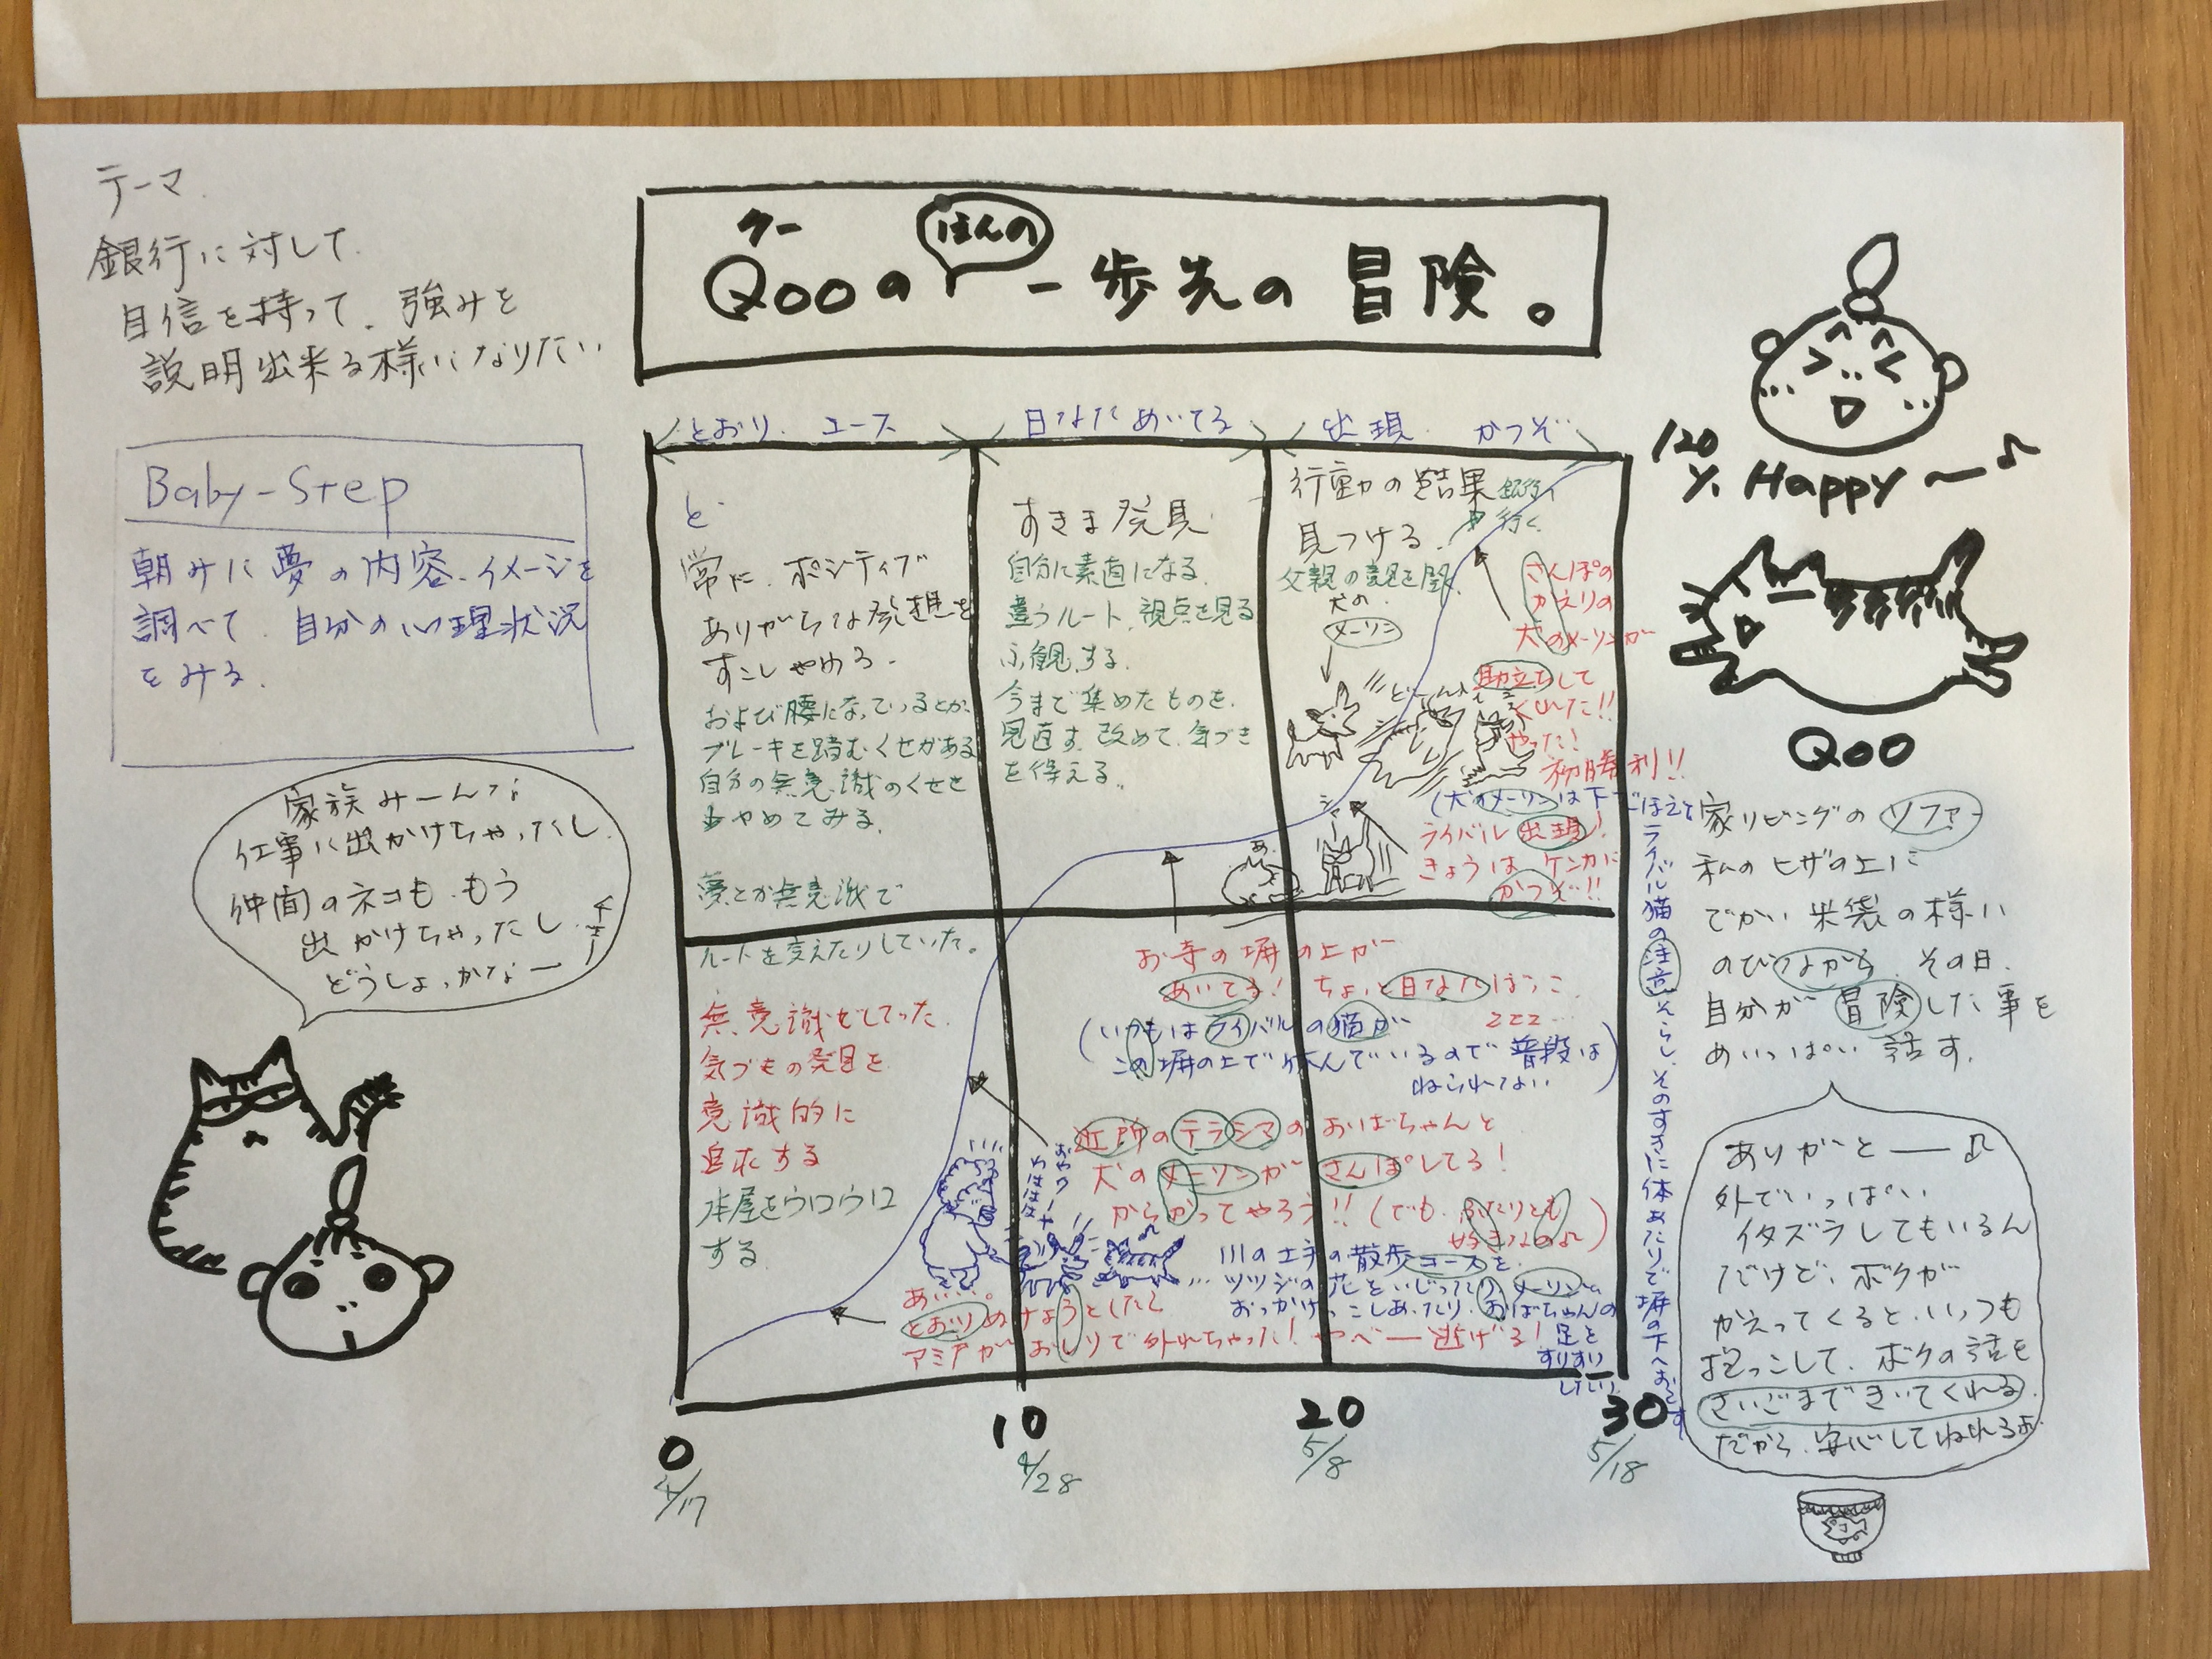 テーマ
銀行に対して
自信を持って、強みを
説明出来る様になりたい
クー
ほんの
Qooの一歩先の冒険。
Baby-Step
朝みに夢の内容、イメージを
調べて、自分の心理状況
をみる.
家族みーんな
仕事に出かけちゃったし
仲間のネコも、もう
出かけちゃったし
どうしょっかなー
とおり コース
日なた めいてる
出現 かつぞ
と
常に、ポジティブ
ありがちな発想を
すこしやめる
および腰になっているとか、
ブレーキを踏むくせがある
自分の無意識のくせを
やめてみる.
夢とか無意識で
ルートを変えたりしていた。
無意識でしてった
気づもの発見を
意識的に
追求する
本屋をウロウロ
する.
すきま発見
自分に素直になる.
違うルート、視点を見る
ふ観する.
今まで集めたものを、
見直す、改めて、気づき
を
行動の結果
銀行へ
行く
見つける.
父親の意見を聞く
犬の
メーリン
さんぽの
かえりの
犬のメーリンが
助立ちして
くれた!!
やった!
初勝利!!
(犬のメーリンは下でほえて
ライバル猫の注意そらし、そのすきに体あたりで塀の下へおとす
ライバル出現!
きょうはケンカに
かつぞ!!
あ.
お寺の塀の上が
あいてる! ちょいと日なたぼっこ
zzz...
(いつもはライバルの猫が
この塀の上で休んでいるので普段は
ねられない)
近所のテラシマのおばちゃんと
犬のメーリンがさんぽしてる!
からかってやろう!! (でも、ふたりとも
好きなの♪)
川の土手の散歩コースを、
... ツツジの花をいじったり、メーリンと
おっかけっこしあったり、おばちゃんの
足を
すりすり
したり.
あ....。
とおりぬけようとしたら
アミアがおしりで外れちゃった! やべー逃げる!
0
4/17
10
4/28
20
5/8
30
5/18
120
%
Happy〜♪
Qoo
家リビングのソファ
私のヒザの上に
でかい米袋の様に
のびながら、その日、
自分が冒険した事を
めいっぱい話す.
ありがとー♫
外でいっぱい
イタズラしてもいるん
だけど、ボクが
かえってくると、いつも
抱っこして、ボクの話を
さいごまできいてくれる.
だから、安心してねれるよ